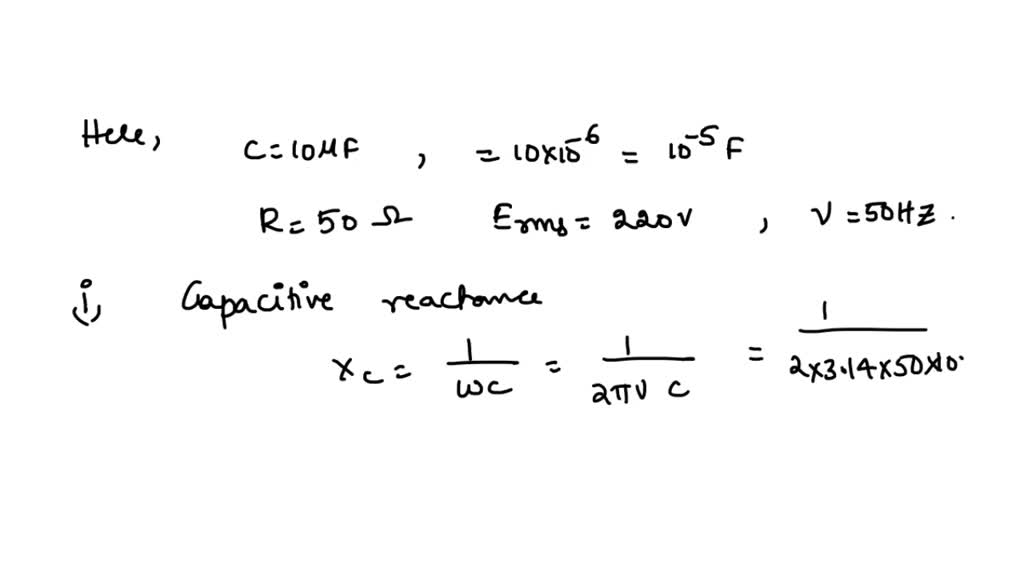 Here, C = 10 μF , = 10×10⁻⁶ = 10⁻⁵ F
R = 50 Ω Erms = 220V , ν = 50HZ .
i, Capacitive reactance
Xc = 1/ωC = 1/2πν C = 1/2×3.14×50×10.